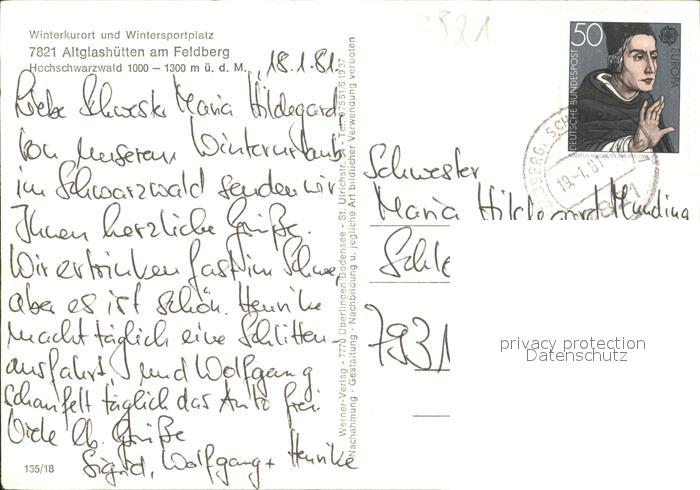 Winterkurort und Wintersportplatz
7821 Altglashütten am Feldberg
Hochschwarzwald 1000 – 1300 m ü. d. M.
18.1.81.
Liebe Schwester Maria Hildegard,
von unserem Winterurlaub
im Schwarzwald senden wir
Ihnen herzliche Grüße.
Wir ertrinken fast im Schnee,
aber es ist schön. Henrike
macht täglich eine Schlitten-
ausfahrt, und Wolfgang
schaufelt täglich das Auto frei.
Viele lb. Grüße
Sigrid, Wolfgang + Henrike
135/18
Werner-Verlag - 7770 Überlingen Bodensee - St. Ulrichstr. - Tel. 07551/61937
Nachahmung - Gestaltung - Nachbildung u. jegliche Art bildlicher Verwendung verboten
7821
50
DEUTSCHE BUNDESPOST
EUROPA
19.-1.81
Schwester
Maria Hildegard Mundina
Schle
7931
privacy protection
Datenschutz